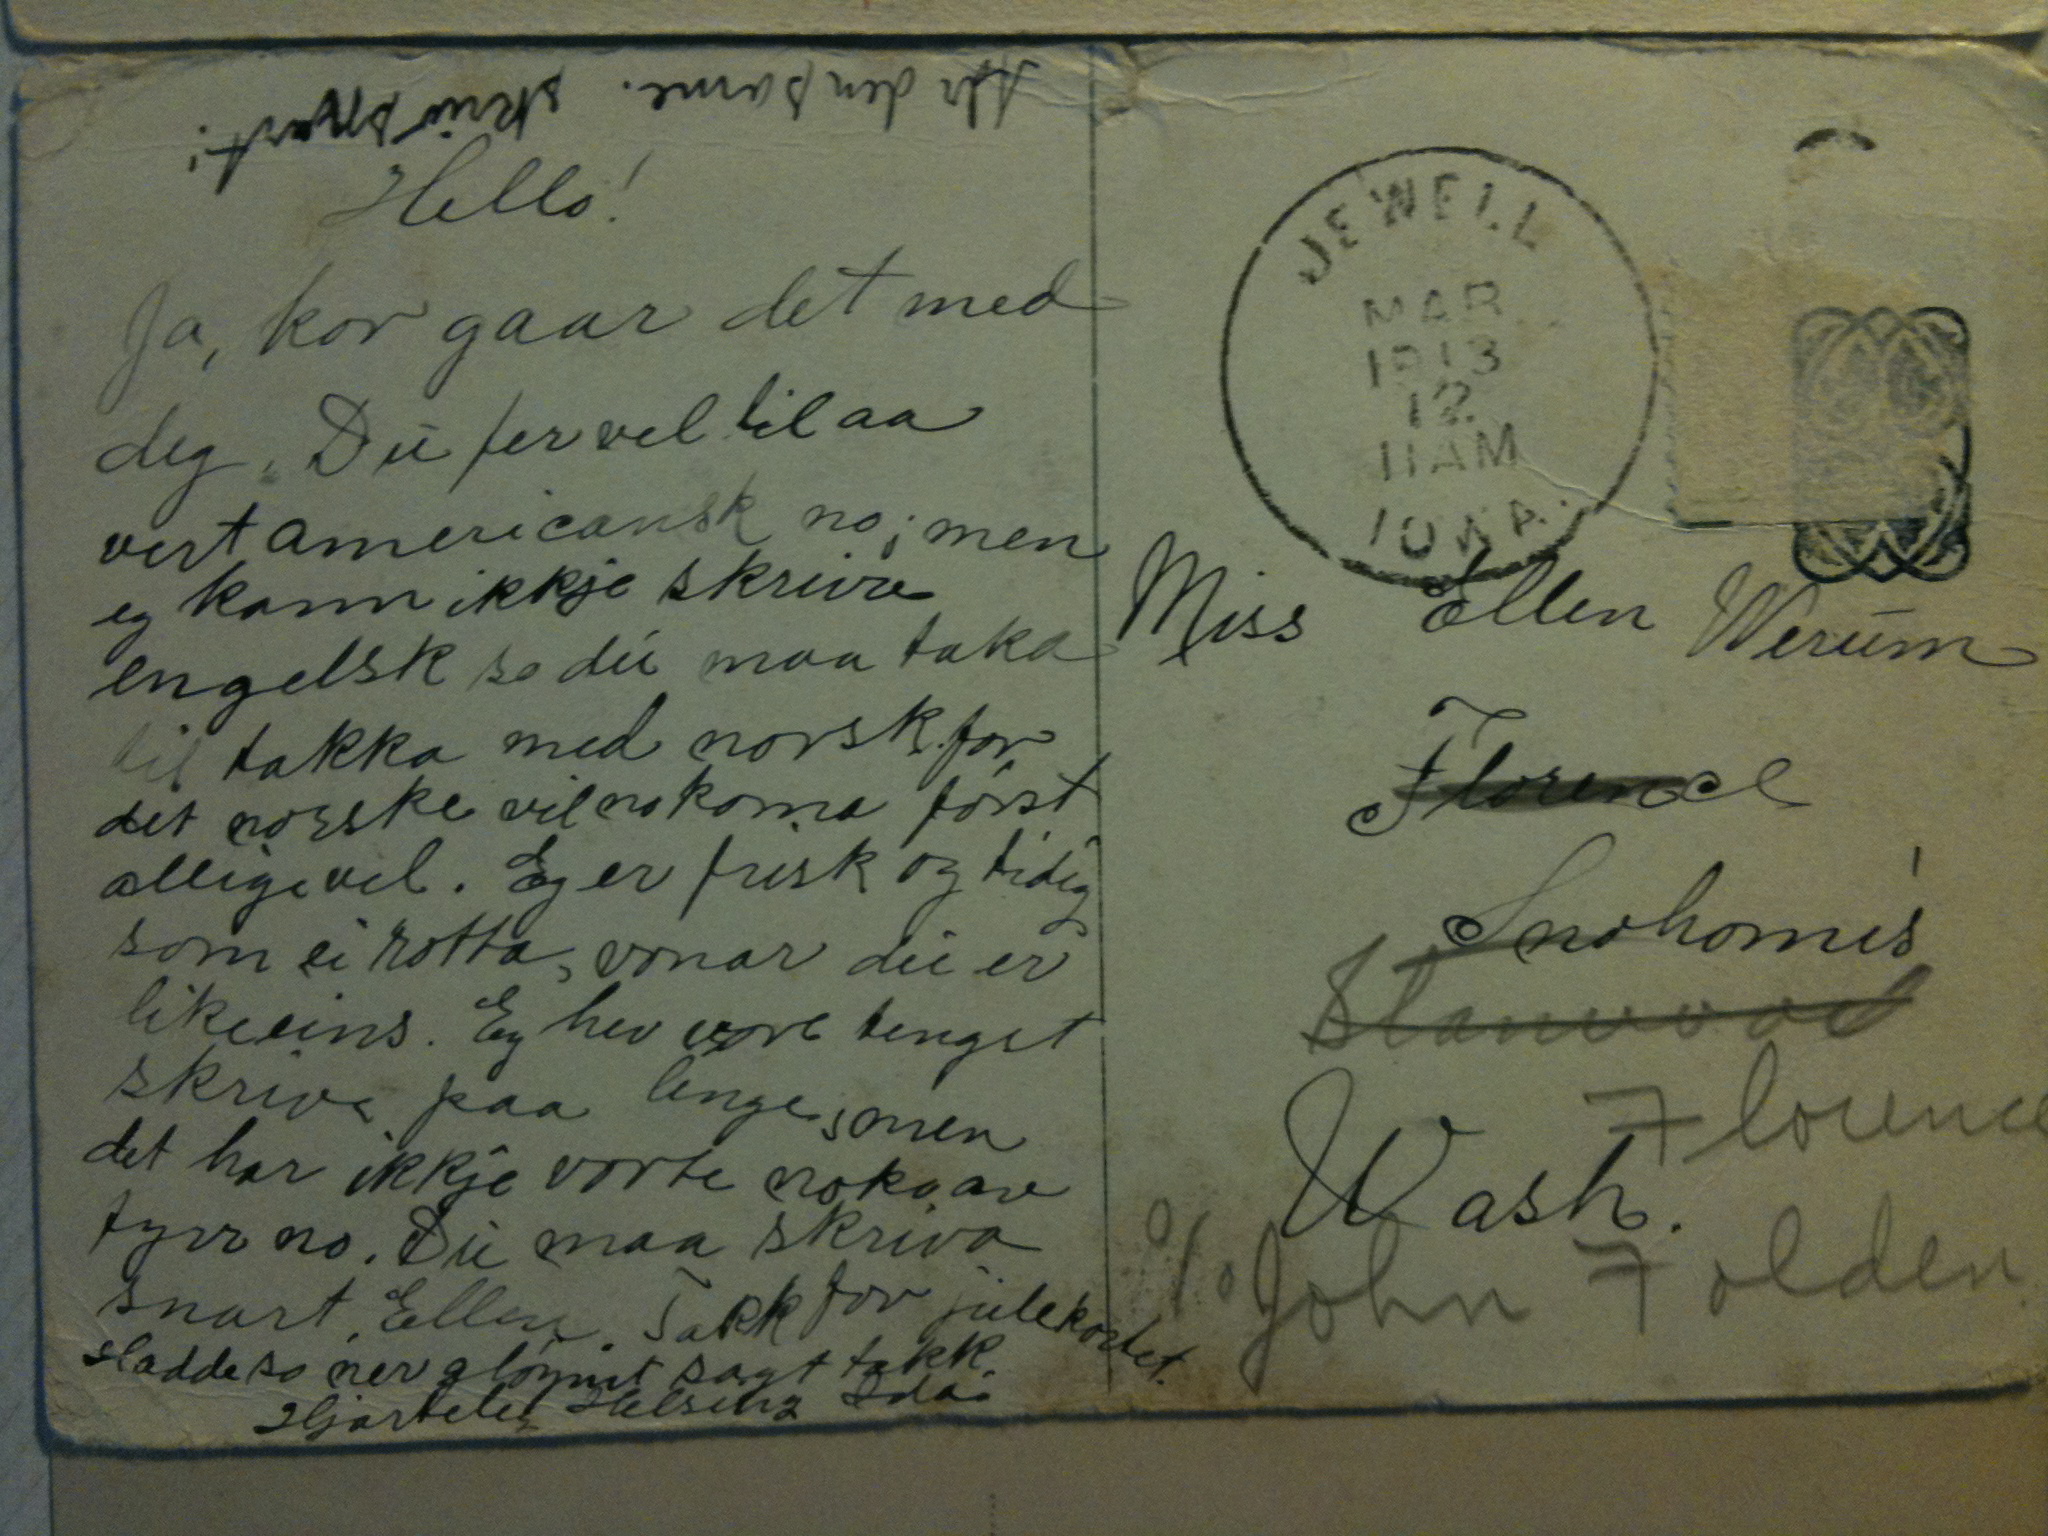 den same. skriv snart!
Hello!
Ja, kor gaar det med
deg. Du fer vel til aa
vert americansk no; men
eg kann ikkje skrive
engelsk so du maa taka
til takka med norsk for
det norske vil no koma först
alligevel. Eg er frisk og tidig
som ei rotta, vonar du er
likeeins. Eg hev tengst
skriva paa lenge, men
det har ikkje vorte noko av
fyrr no. Du maa skriva
snart, Ellen. Takk for julekortet.
so ner glöymt sagt takk.
Hjarteleg Helsing Ida
JEWELL
MAR
1913
12
11AM
IOWA.
Miss Ellen Werum
Florence
Snohomis
Stanwood
Florence
Wash.
c/o John Folden